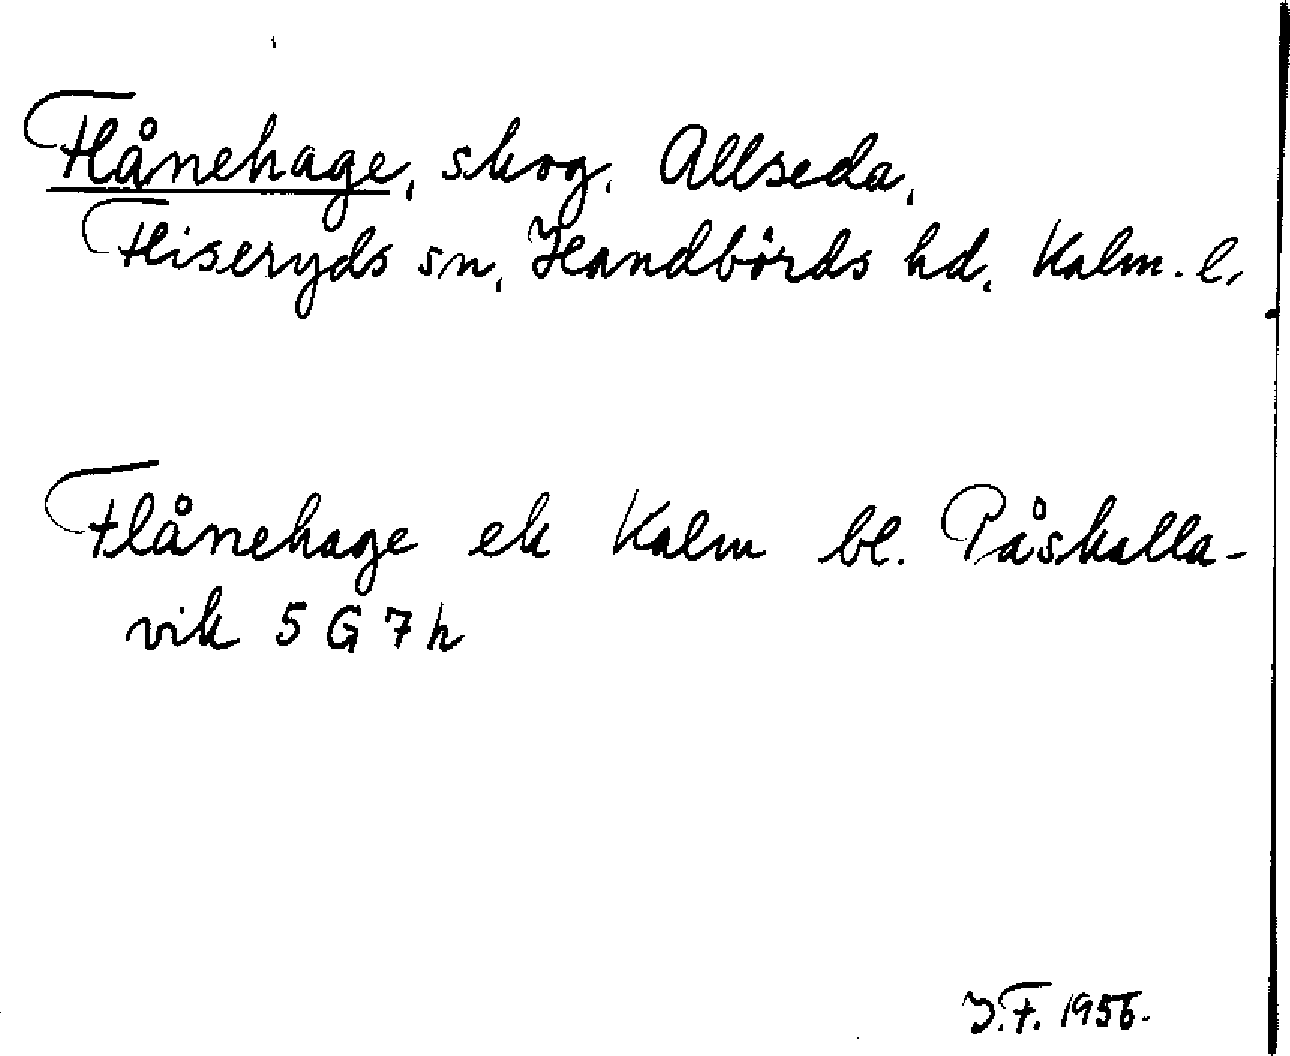 Flånehage, skog, Allseda,
Fliseryds sn, Handbörds hd, Kalm. l.
Flånehage ek Kalm bl. Påskalla-
vik 5 G 7 h
J.F. 1956.